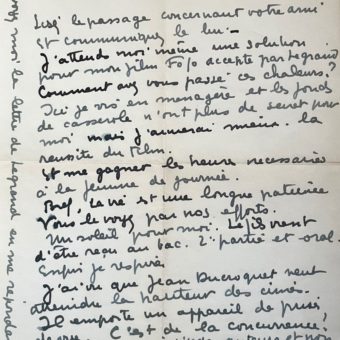 Lisez le passage concernant votre ami
et communiquez le lui.
J'attend moi même une solution
pour mon film Fo/o accepté par Legrand
Comment avez vous passé ces chaleurs?
Ici je vis en menagère et les fonds
de casserole n'ont plus de secret pour
moi mais j'aimerai mieux la
reussite du film.
Et me gagner les heures necessaires
à la femme de journée.
Bref, la vie est une longue patience
Vous le voyez par nos efforts.
Un soleil pour moi. Le fils vient
d'être reçu au bac. 2e partie et oral.
Enfin je respire
J'ai vu que Jean Ducroquet veut
atteindre la hauteur des cimes.
Il emporte un appareil de prise
C'est de la concurrence?
moi la lettre de Legrand en me